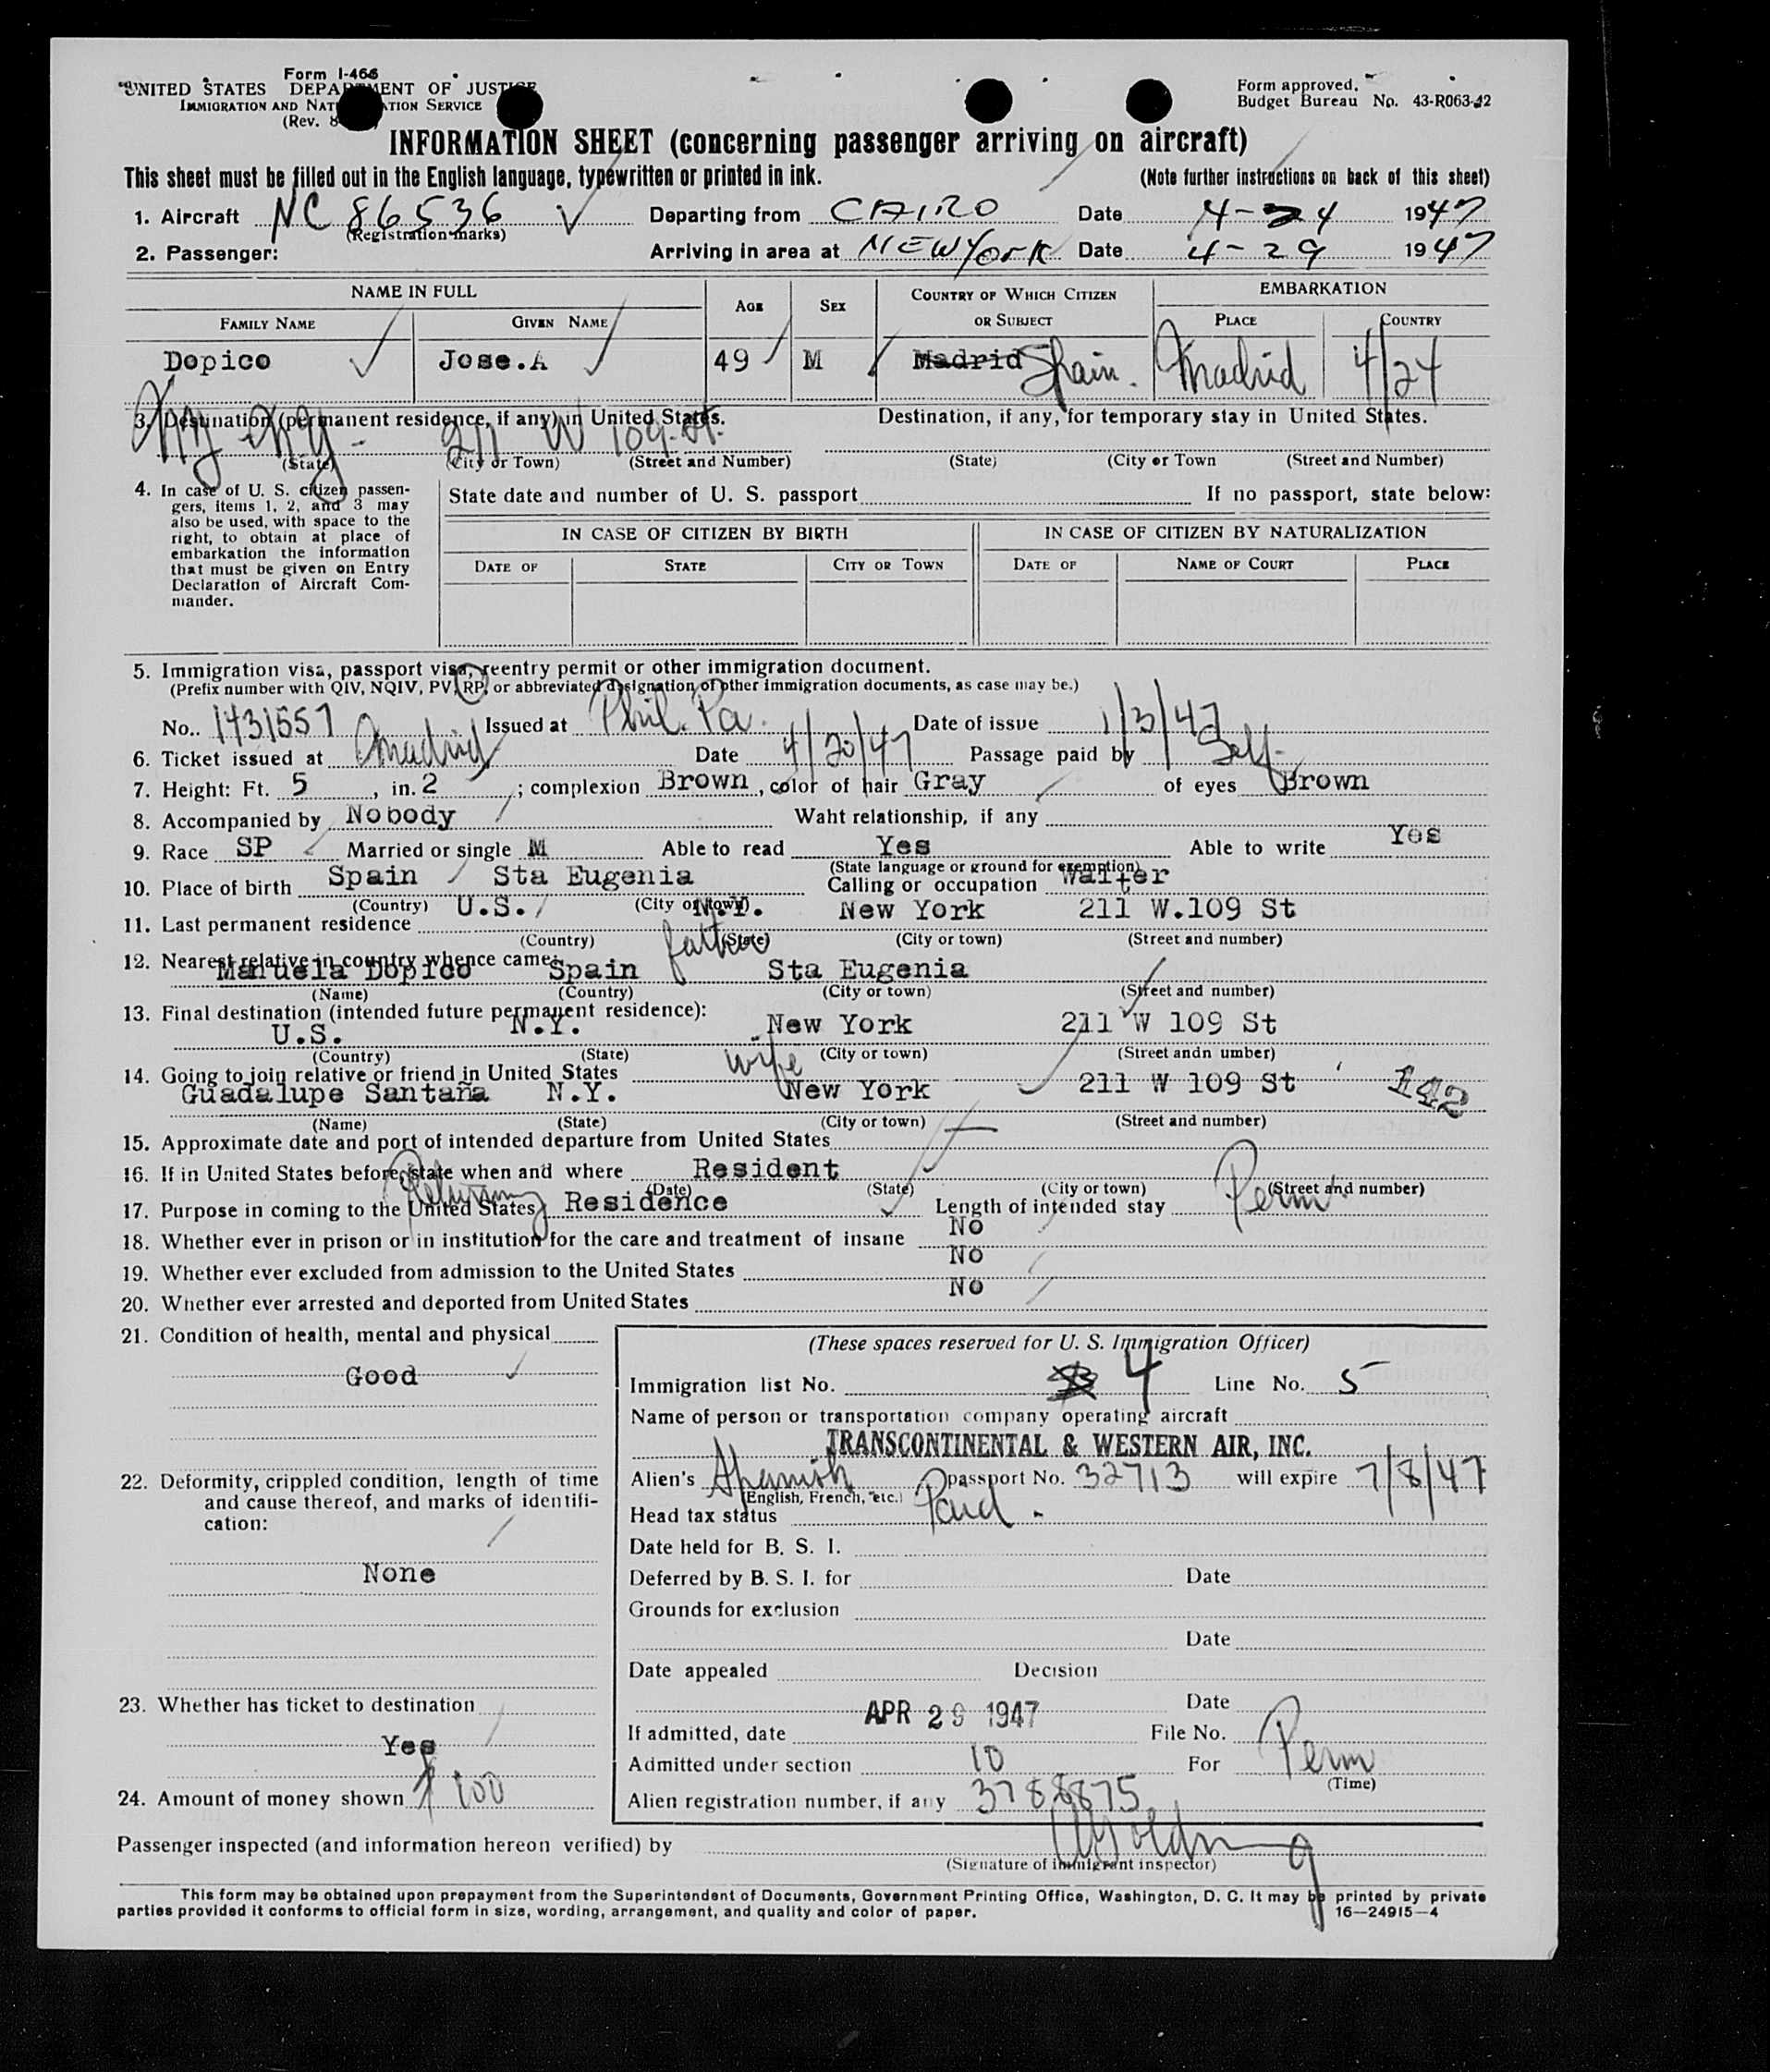 Form I-466
UNITED STATES DEPARTMENT OF JUSTICE
IMMIGRATION AND NATURALIZATION SERVICE
(Rev. 8
Form approved.
Budget Bureau No. 43-R063-42
INFORMATION SHEET (concerning passenger arriving on aircraft)
This sheet must be filled out in the English language, typewritten or printed in ink. (Note further instructions on back of this sheet)
1. Aircraft NC 86536 Departing from CAIRO Date 4-24 1947
(Registration marks)
2. Passenger: Arriving in area at NEW YORK Date 4-29 1947
NAME IN FULL AGE SEX COUNTRY OF WHICH CITIZEN OR SUBJECT EMBARKATION
FAMILY NAME GIVEN NAME PLACE COUNTRY
Dopico Jose.A 49 M Madrid Spain. Madrid 4/24
3. Destination (permanent residence, if any) in United States. Destination, if any, for temporary stay in United States.
NY-NY- 211 W 109-St.
(State) (City or Town) (Street and Number) (State) (City or Town (Street and Number)
4. In case of U. S. citizen passen-
gers, items 1, 2, and 3 may
also be used, with space to the
right, to obtain at place of
embarkation the information
that must be given on Entry
Declaration of Aircraft Com-
mander.
State date and number of U. S. passport If no passport, state below:
IN CASE OF CITIZEN BY BIRTH IN CASE OF CITIZEN BY NATURALIZATION
DATE OF STATE CITY OR TOWN DATE OF NAME OF COURT PLACE
5. Immigration visa, passport visa, reentry permit or other immigration document.
(Prefix number with QIV, NQIV, PV, RP, or abbreviated designation of other immigration documents, as case may be.)
No.. 1431557 Issued at Phil. Pa. Date of issue 1/3/47
6. Ticket issued at Madrid Date 4/20/47 Passage paid by Self-
7. Height: Ft. 5, in. 2; complexion Brown, color of hair Gray of eyes Brown
8. Accompanied by Nobody Waht relationship, if any
9. Race SP Married or single M Able to read Yes Able to write Yes
(State language or ground for exemption)
10. Place of birth Spain Sta Eugenia Calling or occupation Waiter
(Country) (City or town)
11. Last permanent residence U.S. N.Y. New York 211 W.109 St
(Country) (State) (City or town) (Street and number)
12. Nearest relative in country whence came: father
Manuela Dopico Spain Sta Eugenia
(Name) (Country) (City or town) (Street and number)
13. Final destination (intended future permanent residence):
U.S. N.Y. New York 211 W 109 St
(Country) (State) (City or town) (Street andn umber)
14. Going to join relative or friend in United States wife
Guadalupe Santaña N.Y. New York 211 W 109 St 142
(Name) (State) (City or town) (Street and number)
15. Approximate date and port of intended departure from United States —
16. If in United States before, state when and where Resident
(Date) (State) (City or town) (Street and number)
17. Purpose in coming to the United States Returning Residence Length of intended stay Perm.
18. Whether ever in prison or in institution for the care and treatment of insane No
19. Whether ever excluded from admission to the United States No
20. Whether ever arrested and deported from United States No
21. Condition of health, mental and physical
Good
22. Deformity, crippled condition, length of time
and cause thereof, and marks of identifi-
cation:
None
23. Whether has ticket to destination
Yes
24. Amount of money shown $100
(These spaces reserved for U. S. Immigration Officer)
Immigration list No. 4 Line No. 5
Name of person or transportation company operating aircraft
TRANSCONTINENTAL & WESTERN AIR, INC.
Alien's Spanish passport No. 32713 will expire 7/8/47
(English, French, etc.)
Head tax status Paid -
Date held for B. S. I.
Deferred by B. S. I. for Date
Grounds for exclusion
Date
Date appealed Decision
Date
If admitted, date APR 29 1947 File No.
Admitted under section 10 For Perm
(Time)
Alien registration number, if any 3788875
Passenger inspected (and information hereon verified) by
(Signature of immigrant inspector)
This form may be obtained upon prepayment from the Superintendent of Documents, Government Printing Office, Washington, D. C. It may be printed by private
parties provided it conforms to official form in size, wording, arrangement, and quality and color of paper. 16—24915—4